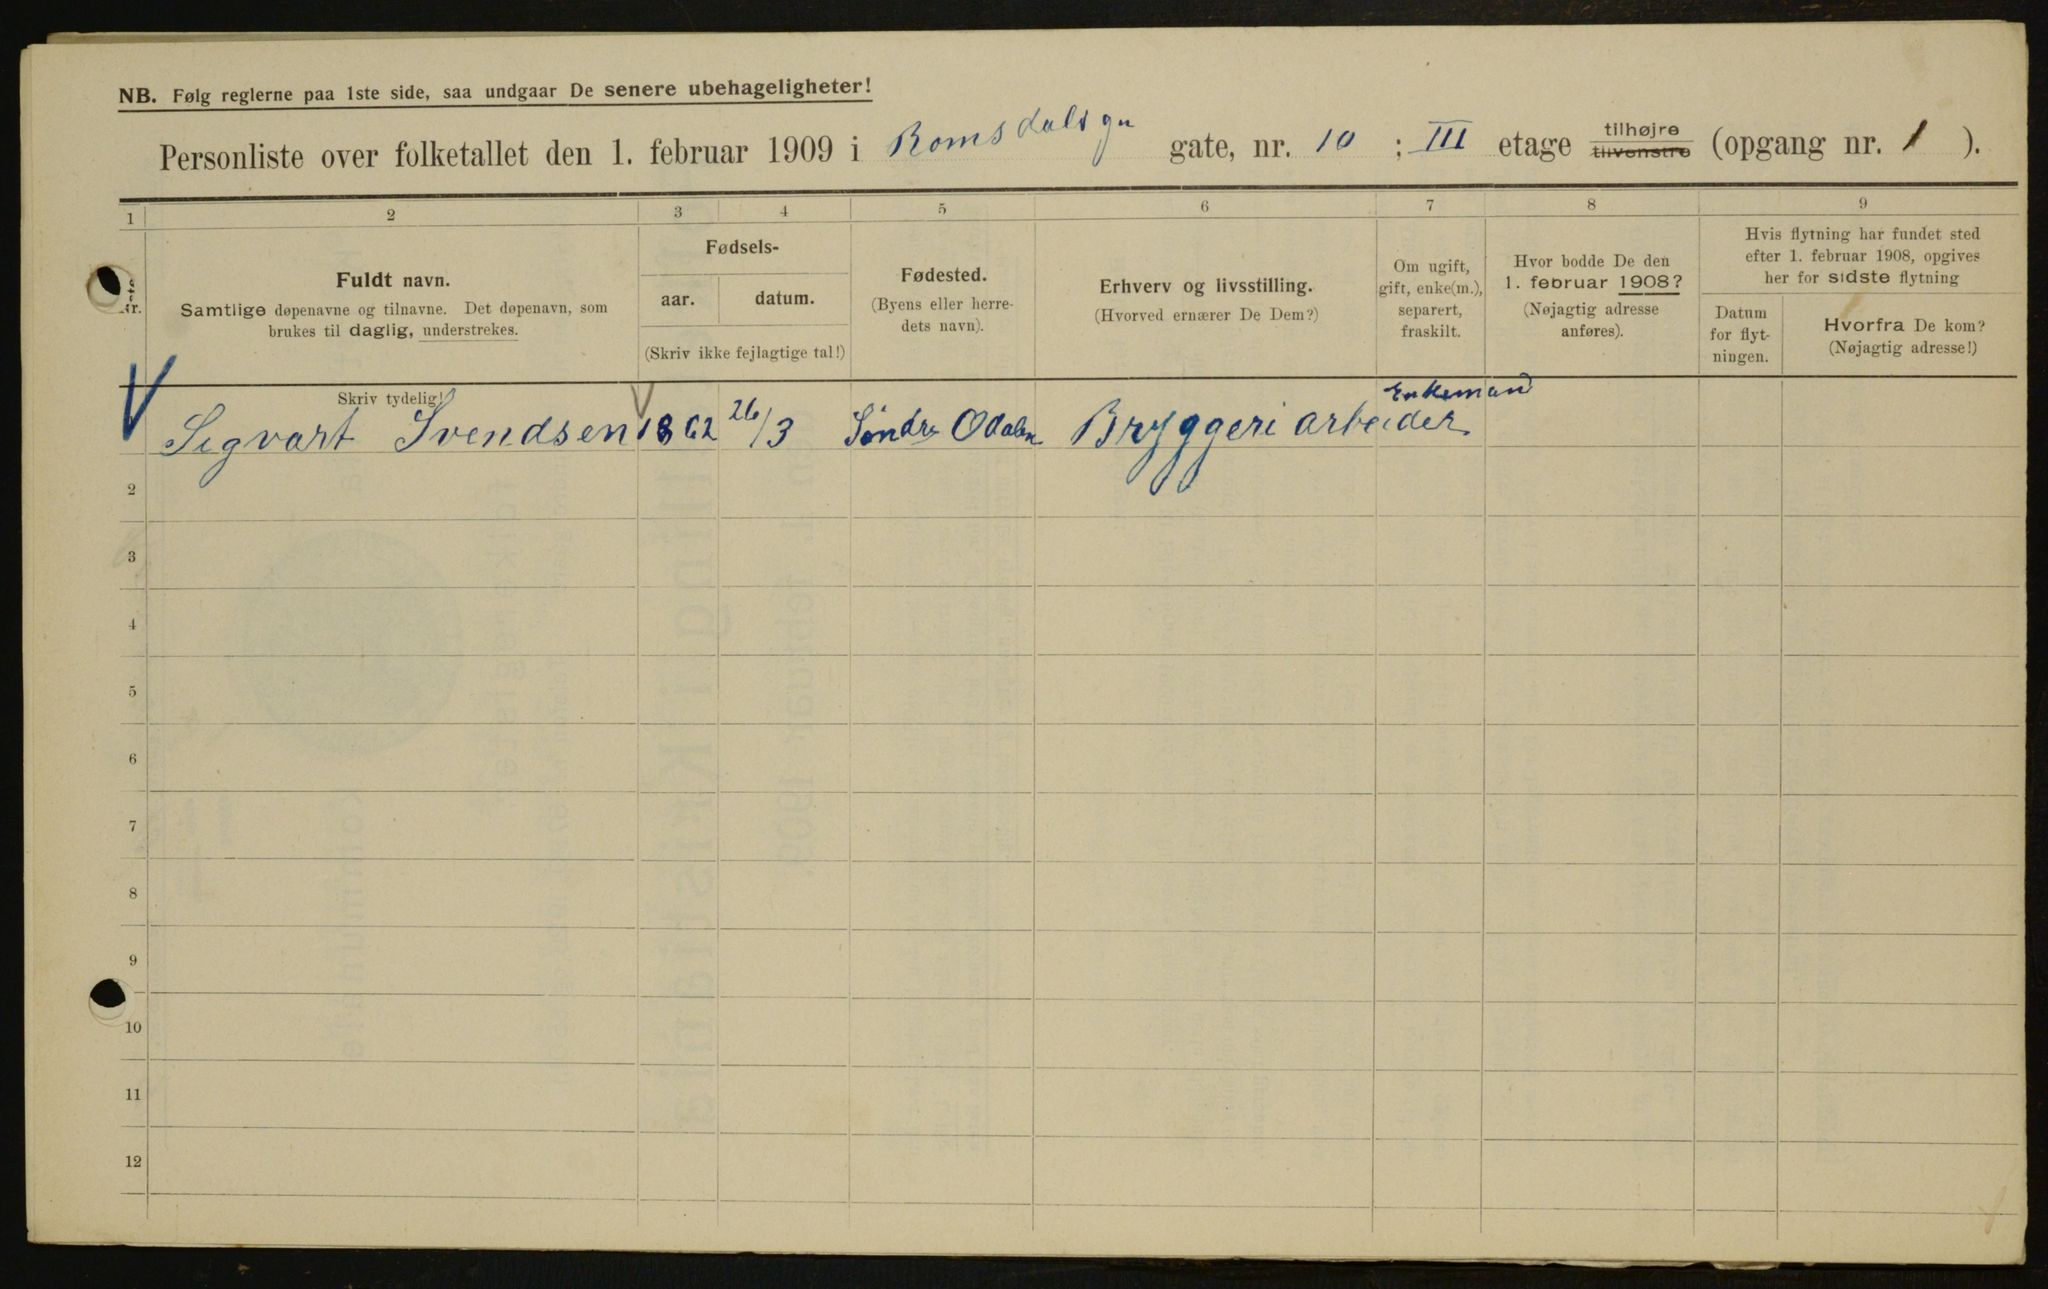 NB. Følg reglerne paa 1ste side, saa undgaar De senere ubehageligheter!
Personliste over folketallet den 1. februar 1909 i Romsdalsgn gate, nr. 10 ; III etage tilhøjre tilvenstre (opgang nr. 1 ).
1 2 3 4 5 6 7 8 9
Fuldt navn.
Samtlige døpenavne og tilnavne. Det døpenavn, som
brukes til daglig, understrekes.
Fødsels-
aar. datum.
(Skriv ikke fejlagtige tal!)
Fødested.
(Byens eller herre-
dets navn).
Erhverv og livsstilling.
(Hvorved ernærer De Dem?)
Om ugift,
gift, enke(m.),
separert,
fraskilt.
Hvor bodde De den
1. februar 1908?
(Nøjagtig adresse
anføres).
Hvis flytning har fundet sted
efter 1. februar 1908, opgives
her for sidste flytning
Datum
for flyt-
ningen.
Hvorfra De kom?
(Nøjagtig adresse!)
Skriv tydelig!
Enkemand
Sigvart Svendsen 1862 26/3 Søndre Odalen Bryggeri arbeider
2
3
4
5
6
7
8
9
10
11
12